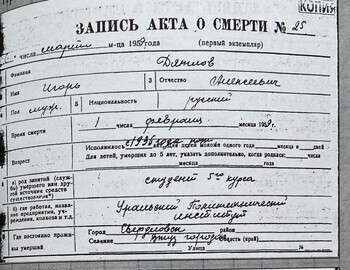 КОПИЯ
ЗАПИСЬ АКТА О СМЕРТИ № 25
числа марта м-ца 1959 года (первый экземпляр)
Фамилия Дятлов
Имя Игорь 3 Отчество Алексеевич
Пол муж. 5 Национальность русский
Время смерти 1 числа февраля месяца 1959 г.
Исполнилось 1936 года
Возраст Для детей, умерших до 5 лет, указать дополнительно, когда родился: числа месяца
а) род занятий (службы) умершего или другой источник средств существования студент 5го курса
б) где работал, название предприятия, учреждения, колхоза и т.п. Уральский Политехнический
институт
Где постоянно проживал умерший Город Свердловск район
Селение область (край)
Улица №